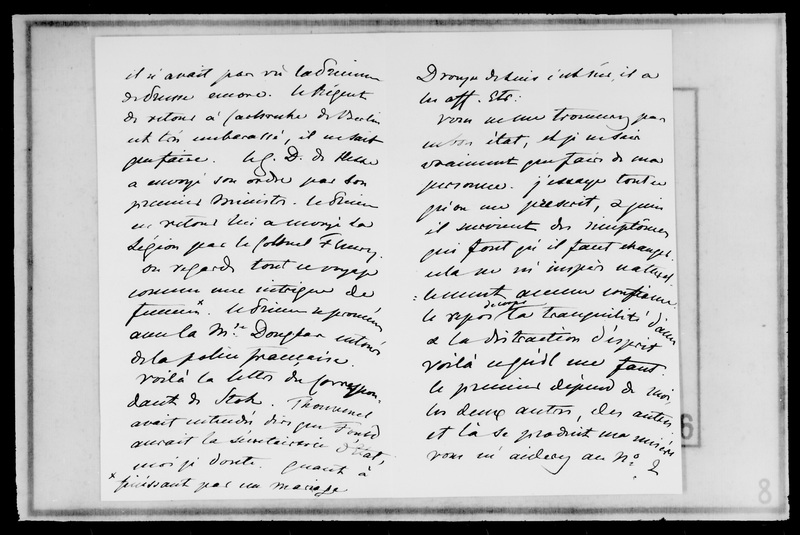 il n'avait pas vu la Princesse
de Prusse encore. le Régent
de retour à Carlsruhe de Berlin
est très embarassé, il ne sait
que faire. le G. D. de Hesse
a envoyé son ordre par son
premier Ministre. le Prince
en retour lui a envoyé la
Légion par le Colonel Fleury.
on regarde tout ce voyage
comme une intrigue de
femmes x. le Prince se promène
avec la Mise Douglas entourés
de la police française.
voilà la lettre du Correspon-
dant de Stok. Thouvenel
avait entendu dire que Fould
aurait la secrétairerie d'état,
moi j'en doute. quant à
x finissant par un mariage
Drouyn de Luis c'est sûr, il a
les aff. Etr.
vous ne me trouverez pas
en bon état, et je ne sais
vraiment que faire de ma
personne. j'essaye tout ce
qu'on me prescrit, & puis
il survient des simptômes
qui font qu'il faut changer.
cela ne m'inspire naturel-
:lement aucune confiance.
le repos de corps la tranquilité d'âme
& la distraction d'esprit
voilà ce qu'il me faut.
le premier dépend de moi,
les deux autres, des autres
et là se produit ma misère
vous m'aiderez au No. 2
6
8